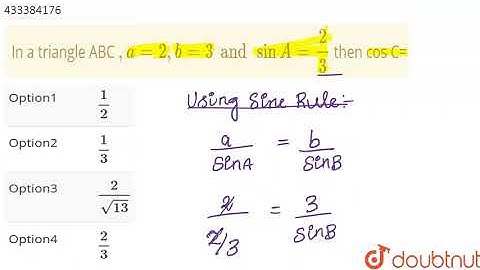 433384176
In a triangle ABC , a = 2, b = 3 and sin A = 2/3 then cos C=
Option1 1/2
Option2 1/3
Option3 2/√13
Option4 2/3
Using Sine Rule:-
a/sinA = b/sinB
2/2/3 = 3/sinB
doubtnut